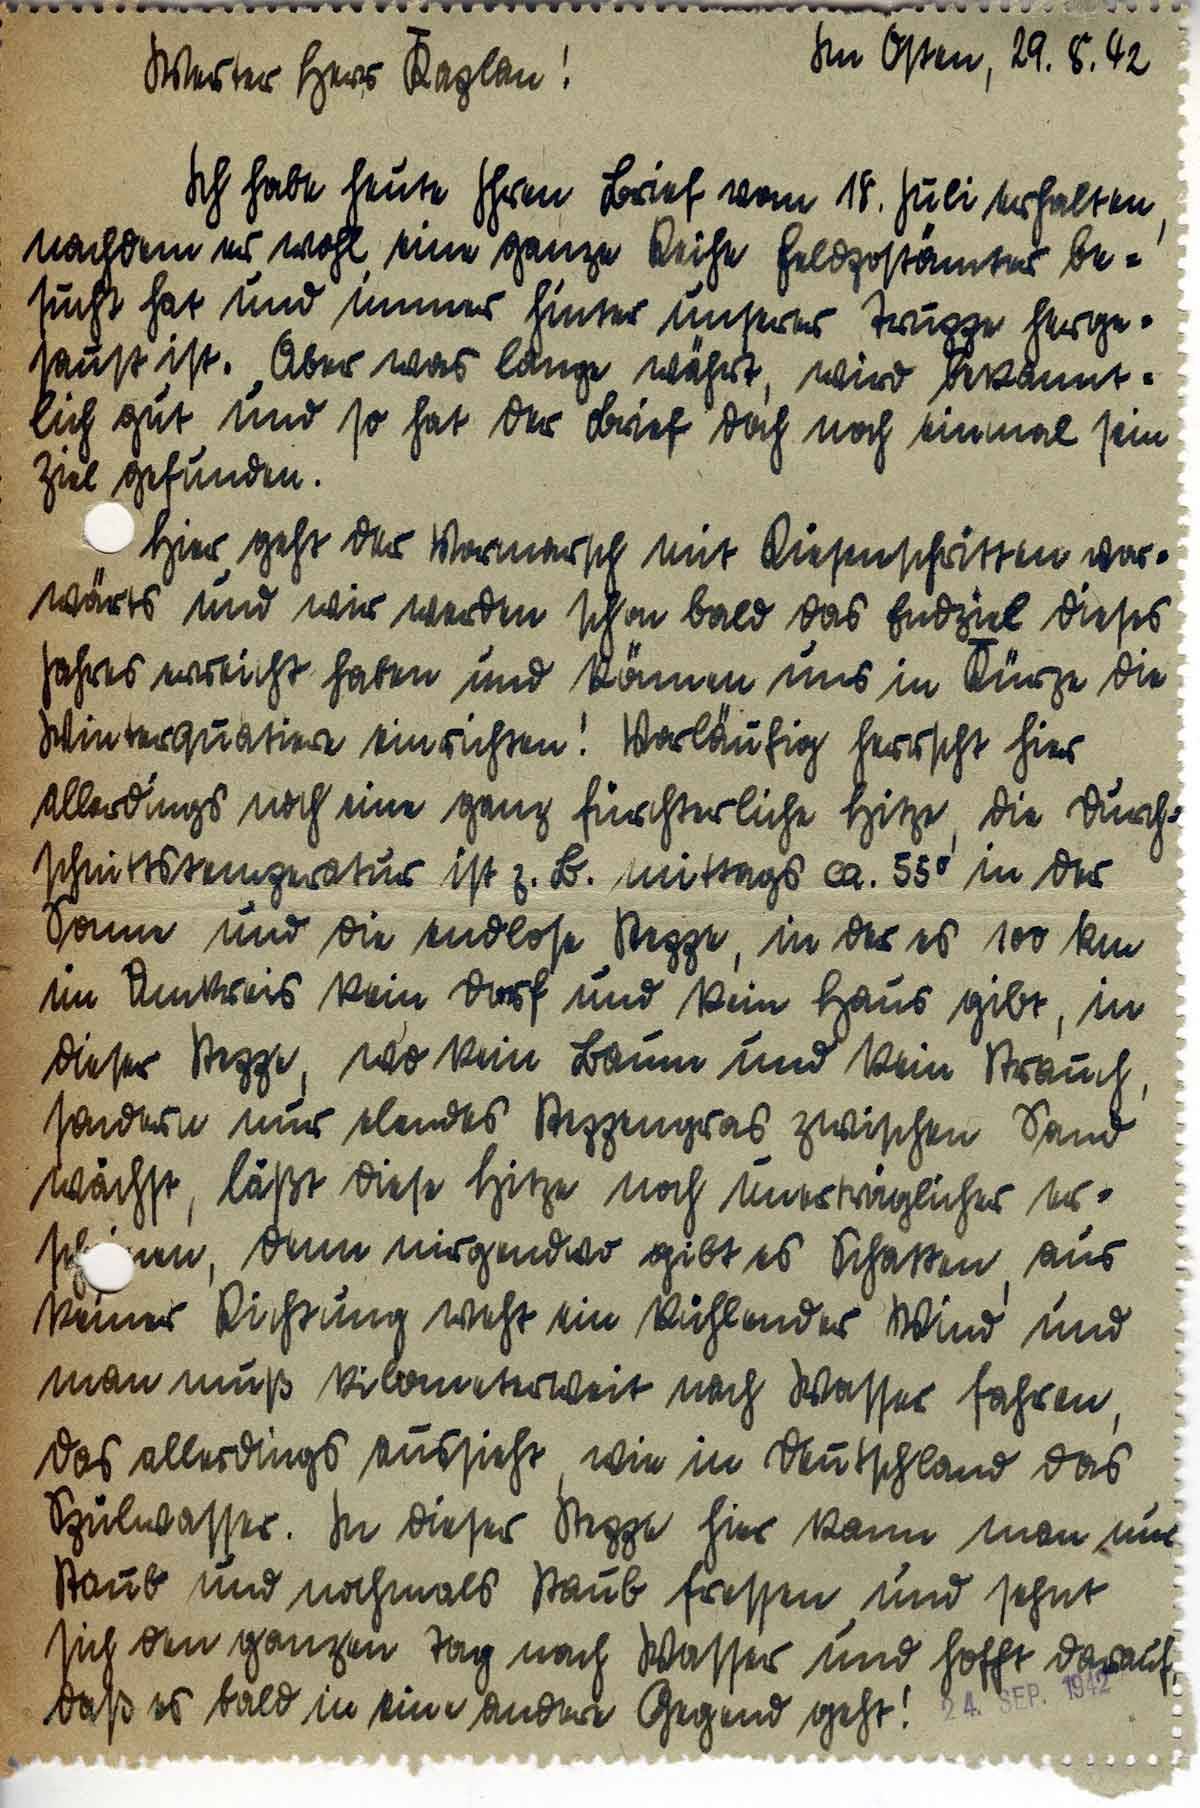 Im Osten, 29.8.42
Werter Herr Kaplan!
Ich habe heute Ihren Brief vom 18. Juli erhalten,
nachdem er wohl eine ganze Reihe Feldpostämter be-
sucht hat und immer hinter unserer Truppe herge-
saust ist. Aber was lange währt, wird bekannt-
lich gut und so hat der Brief doch noch einmal sein
Ziel gefunden.
Hier geht der Vormarsch mit Riesenschritten vor-
wärts und wir werden schon bald das Endziel dieses
Jahres erreicht haben und können uns in Kürze die
Winterquatiere einrichten! Vorläufig herrscht hier
allerdings noch eine ganz fürchterliche Hitze, die Durch-
schnittstemperatur ist z. B. mittags ca. 55° in der
Sonne und die endlose Steppe, in der es 100 km
im Umkreis kein Dorf und kein Haus gibt, in
dieser Steppe, wo kein Baum und kein Strauch,
sondern nur elendes Steppengras zwischen Sand
wächst, läßt diese Hitze noch unerträglicher er-
scheinen, denn nirgendwo gibt es Schatten, aus
keiner Richtung weht ein kühlender Wind und
man muß kilometerweit nach Wasser fahren,
das allerdings aussieht, wie in Deutschland das
Spülwasser. In dieser Steppe hier kann man nur
Staub und nochmals Staub fressen und sehnt
sich den ganzen Tag nach Wasser und hofft darauf,
daß es bald in eine andere Gegend geht!
24. SEP. 1942